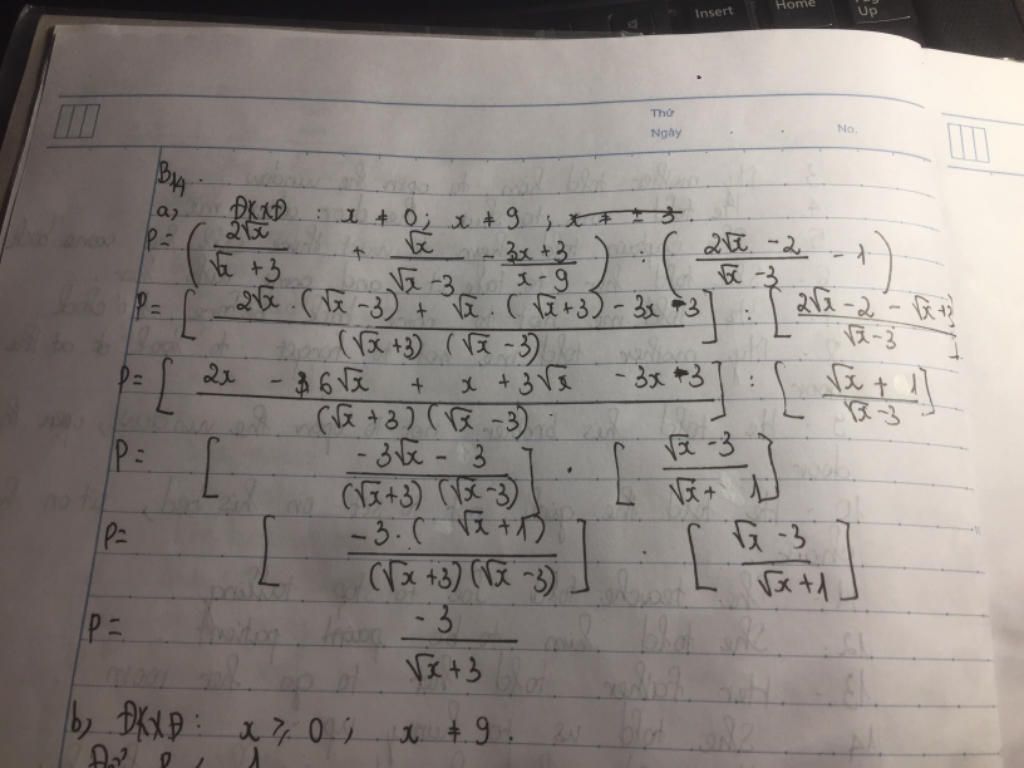 Insert
Home
Pg Up
Thứ
Ngày
No.
B14.
a, ĐKXĐ : x ≠ 0; x ≠ 9; x ≠ ± 3
P = (2√x / √x + 3 + √x / √x - 3 - 3x + 3 / x - 9) : (2√x - 2 / √x - 3 - 1)
P = [2√x . (√x - 3) + √x . (√x + 3) - 3x - 3 / (√x + 3) (√x - 3)] : [2√x - 2 - √x + 3 / √x - 3]
P = [2x - 6√x + x + 3√x - 3x - 3 / (√x + 3) (√x - 3)] : [√x + 1 / √x - 3]
P = [-3√x - 3 / (√x + 3) (√x - 3)] . [√x - 3 / √x + 1]
P = [-3 . (√x + 1) / (√x + 3) (√x - 3)] . [√x - 3 / √x + 1]
P = -3 / √x + 3
b, ĐKXĐ : x ≥ 0 ; x ≠ 9.